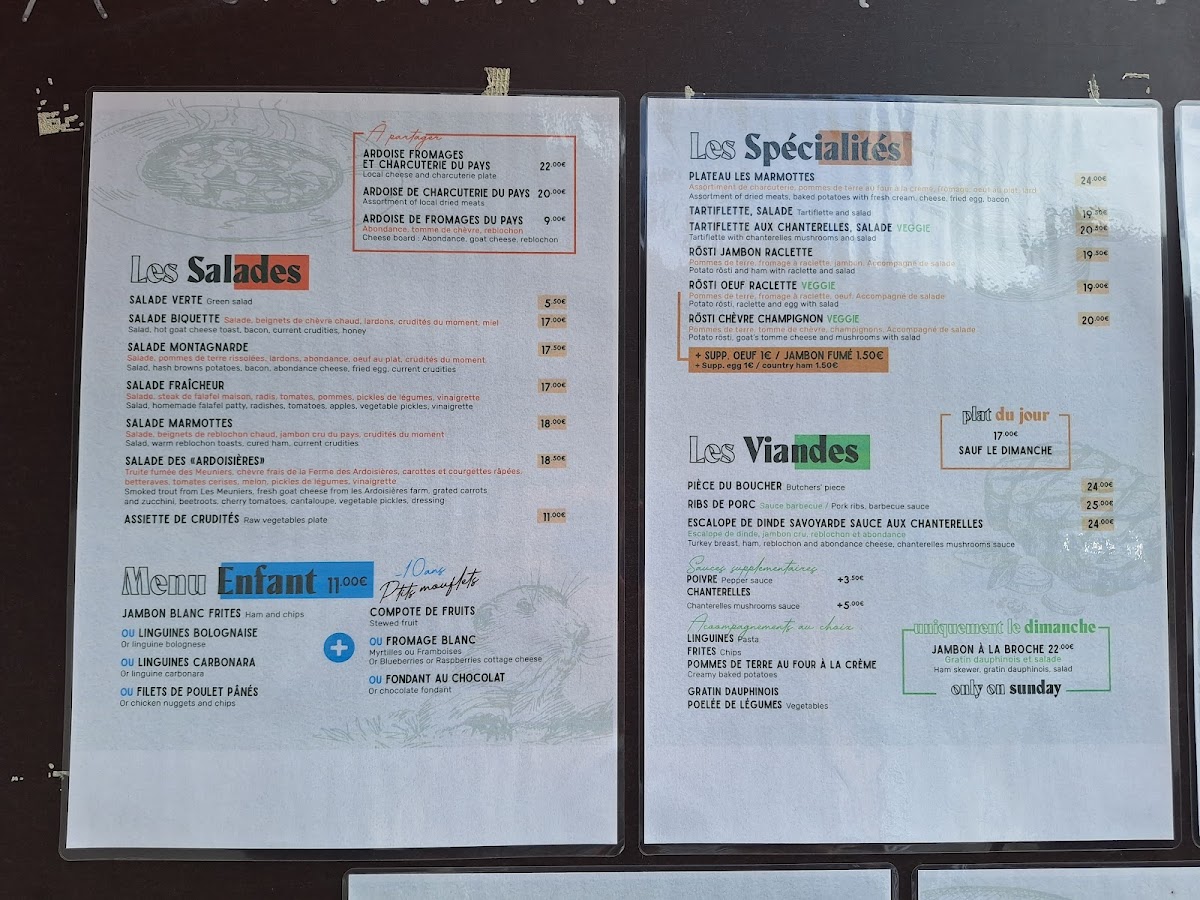 À partager
ARDOISE FROMAGES
ET CHARCUTERIE DU PAYS 22.00€
Local cheese and charcuterie plate
ARDOISE DE CHARCUTERIE DU PAYS 20.00€
Assortment of local dried meats
ARDOISE DE FROMAGES DU PAYS 9.00€
Abondance, tomme de chèvre, reblochon
Cheese board : Abondance, goat cheese, reblochon
Les Salades
SALADE VERTE Green salad 5.50€
SALADE BIQUETTE Salade, beignets de chèvre chaud, lardons, crudités du moment, miel 17.00€
Salad, hot goat cheese toast, bacon, current crudities, honey
SALADE MONTAGNARDE 17.50€
Salade, pommes de terre rissolées, lardons, abondance, oeuf au plat, crudités du moment
Salad, hash browns potatoes, bacon, abondance cheese, fried egg, current crudities
SALADE FRAÎCHEUR 17.00€
Salade, steak de falafel maison, radis, tomates, pommes, pickles de légumes, vinaigrette
Salad, homemade falafel patty, radishes, tomatoes, apples, vegetable pickles, vinaigrette
SALADE MARMOTTES 18.00€
Salade, beignets de reblochon chaud, jambon cru du pays, crudités du moment
Salad, warm reblochon toasts, cured ham, current crudities
SALADE DES «ARDOISIÈRES» 18.50€
Truite fumée des Meuniers, chèvre frais de la Ferme des Ardoisières, carottes et courgettes râpées,
betteraves, tomates cerises, melon, pickles de légumes, vinaigrette
Smoked trout from Les Meuniers, fresh goat cheese from les Ardoisières farm, grated carrots
and zucchini, beetroots, cherry tomatoes, cantaloupe, vegetable pickles, dressing
ASSIETTE DE CRUDITÉS Raw vegetables plate 11.00€
Menu Enfant 11.00€
_10ans
P'tits mouflets
JAMBON BLANC FRITES Ham and chips
OU LINGUINES BOLOGNAISE
Or linguine bolognese
OU LINGUINES CARBONARA
Or linguine carbonara
OU FILETS DE POULET PÂNÉS
Or chicken nuggets and chips
+
COMPOTE DE FRUITS
Stewed fruit
OU FROMAGE BLANC
Myrtilles ou Framboises
Or Blueberries or Raspberries cottage cheese
OU FONDANT AU CHOCOLAT
Or chocolate fondant
Les Spécialités
PLATEAU LES MARMOTTES 24.00€
Assortiment de charcuterie, pommes de terre au four à la crème, fromage, oeuf au plat, lard
Assortment of dried meats, baked potatoes with fresh cream, cheese, fried egg, bacon
TARTIFLETTE, SALADE Tartiflette and salad 19.50€
TARTIFLETTE AUX CHANTERELLES, SALADE VEGGIE 20.50€
Tartiflette with chanterelles mushrooms and salad
RÖSTI JAMBON RACLETTE 19.50€
Pommes de terre, fromage à raclette, jambon. Accompagné de salade
Potato rösti and ham with raclette and salad
RÖSTI OEUF RACLETTE VEGGIE 19.00€
Pommes de terre, fromage à raclette, oeuf. Accompagné de salade
Potato rösti, raclette and egg with salad
RÖSTI CHÈVRE CHAMPIGNON VEGGIE 20.00€
Pommes de terre, tomme de chèvre, champignons, Accompagné de salade
Potato rösti, goat's tomme cheese and mushrooms with salad
+ SUPP. OEUF 1€ / JAMBON FUMÉ 1.50€
+ Supp. egg 1€ / country ham 1.50€
plat du jour
17.00€
SAUF LE DIMANCHE
Les Viandes
PIÈCE DU BOUCHER Butchers' piece 24.00€
RIBS DE PORC Sauce barbecue / Pork ribs, barbecue sauce 25.00€
ESCALOPE DE DINDE SAVOYARDE SAUCE AUX CHANTERELLES 24.00€
Escalope de dinde, jambon cru, reblochon et abondance
Turkey breast, ham, reblochon and abondance cheese, chanterelles mushrooms sauce
Sauces supplementaires
POIVRE Pepper sauce +3.50€
CHANTERELLES
Chanterelles mushrooms sauce +5.00€
Acoompagnements au choix
LINGUINES Pasta
FRITES Chips
POMMES DE TERRE AU FOUR À LA CRÈME
Creamy baked potatoes
GRATIN DAUPHINOIS
POELÉE DE LÉGUMES Vegetables
uniquement le dimanche
JAMBON À LA BROCHE 22.00€
Gratin dauphinois et salade
Ham skewer, gratin dauphinois, salad
only on sunday